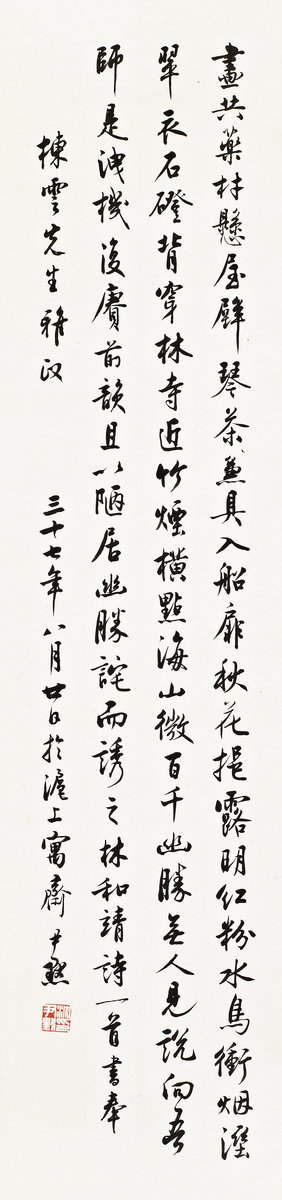 畫共藥材懸屋壁琴茶兼具入船扉秋花挹露明紅粉水鳥衝烟溼
翠衣石磴背穿林寺近竹煙橫點海山微百千幽勝無人見說向吾
師是洩機復賡前韻且以陋居幽勝詫而誘之林和靖詩一首書奉
棟雲先生雅政
三十七年八月廿日於滬上寓齋尹默